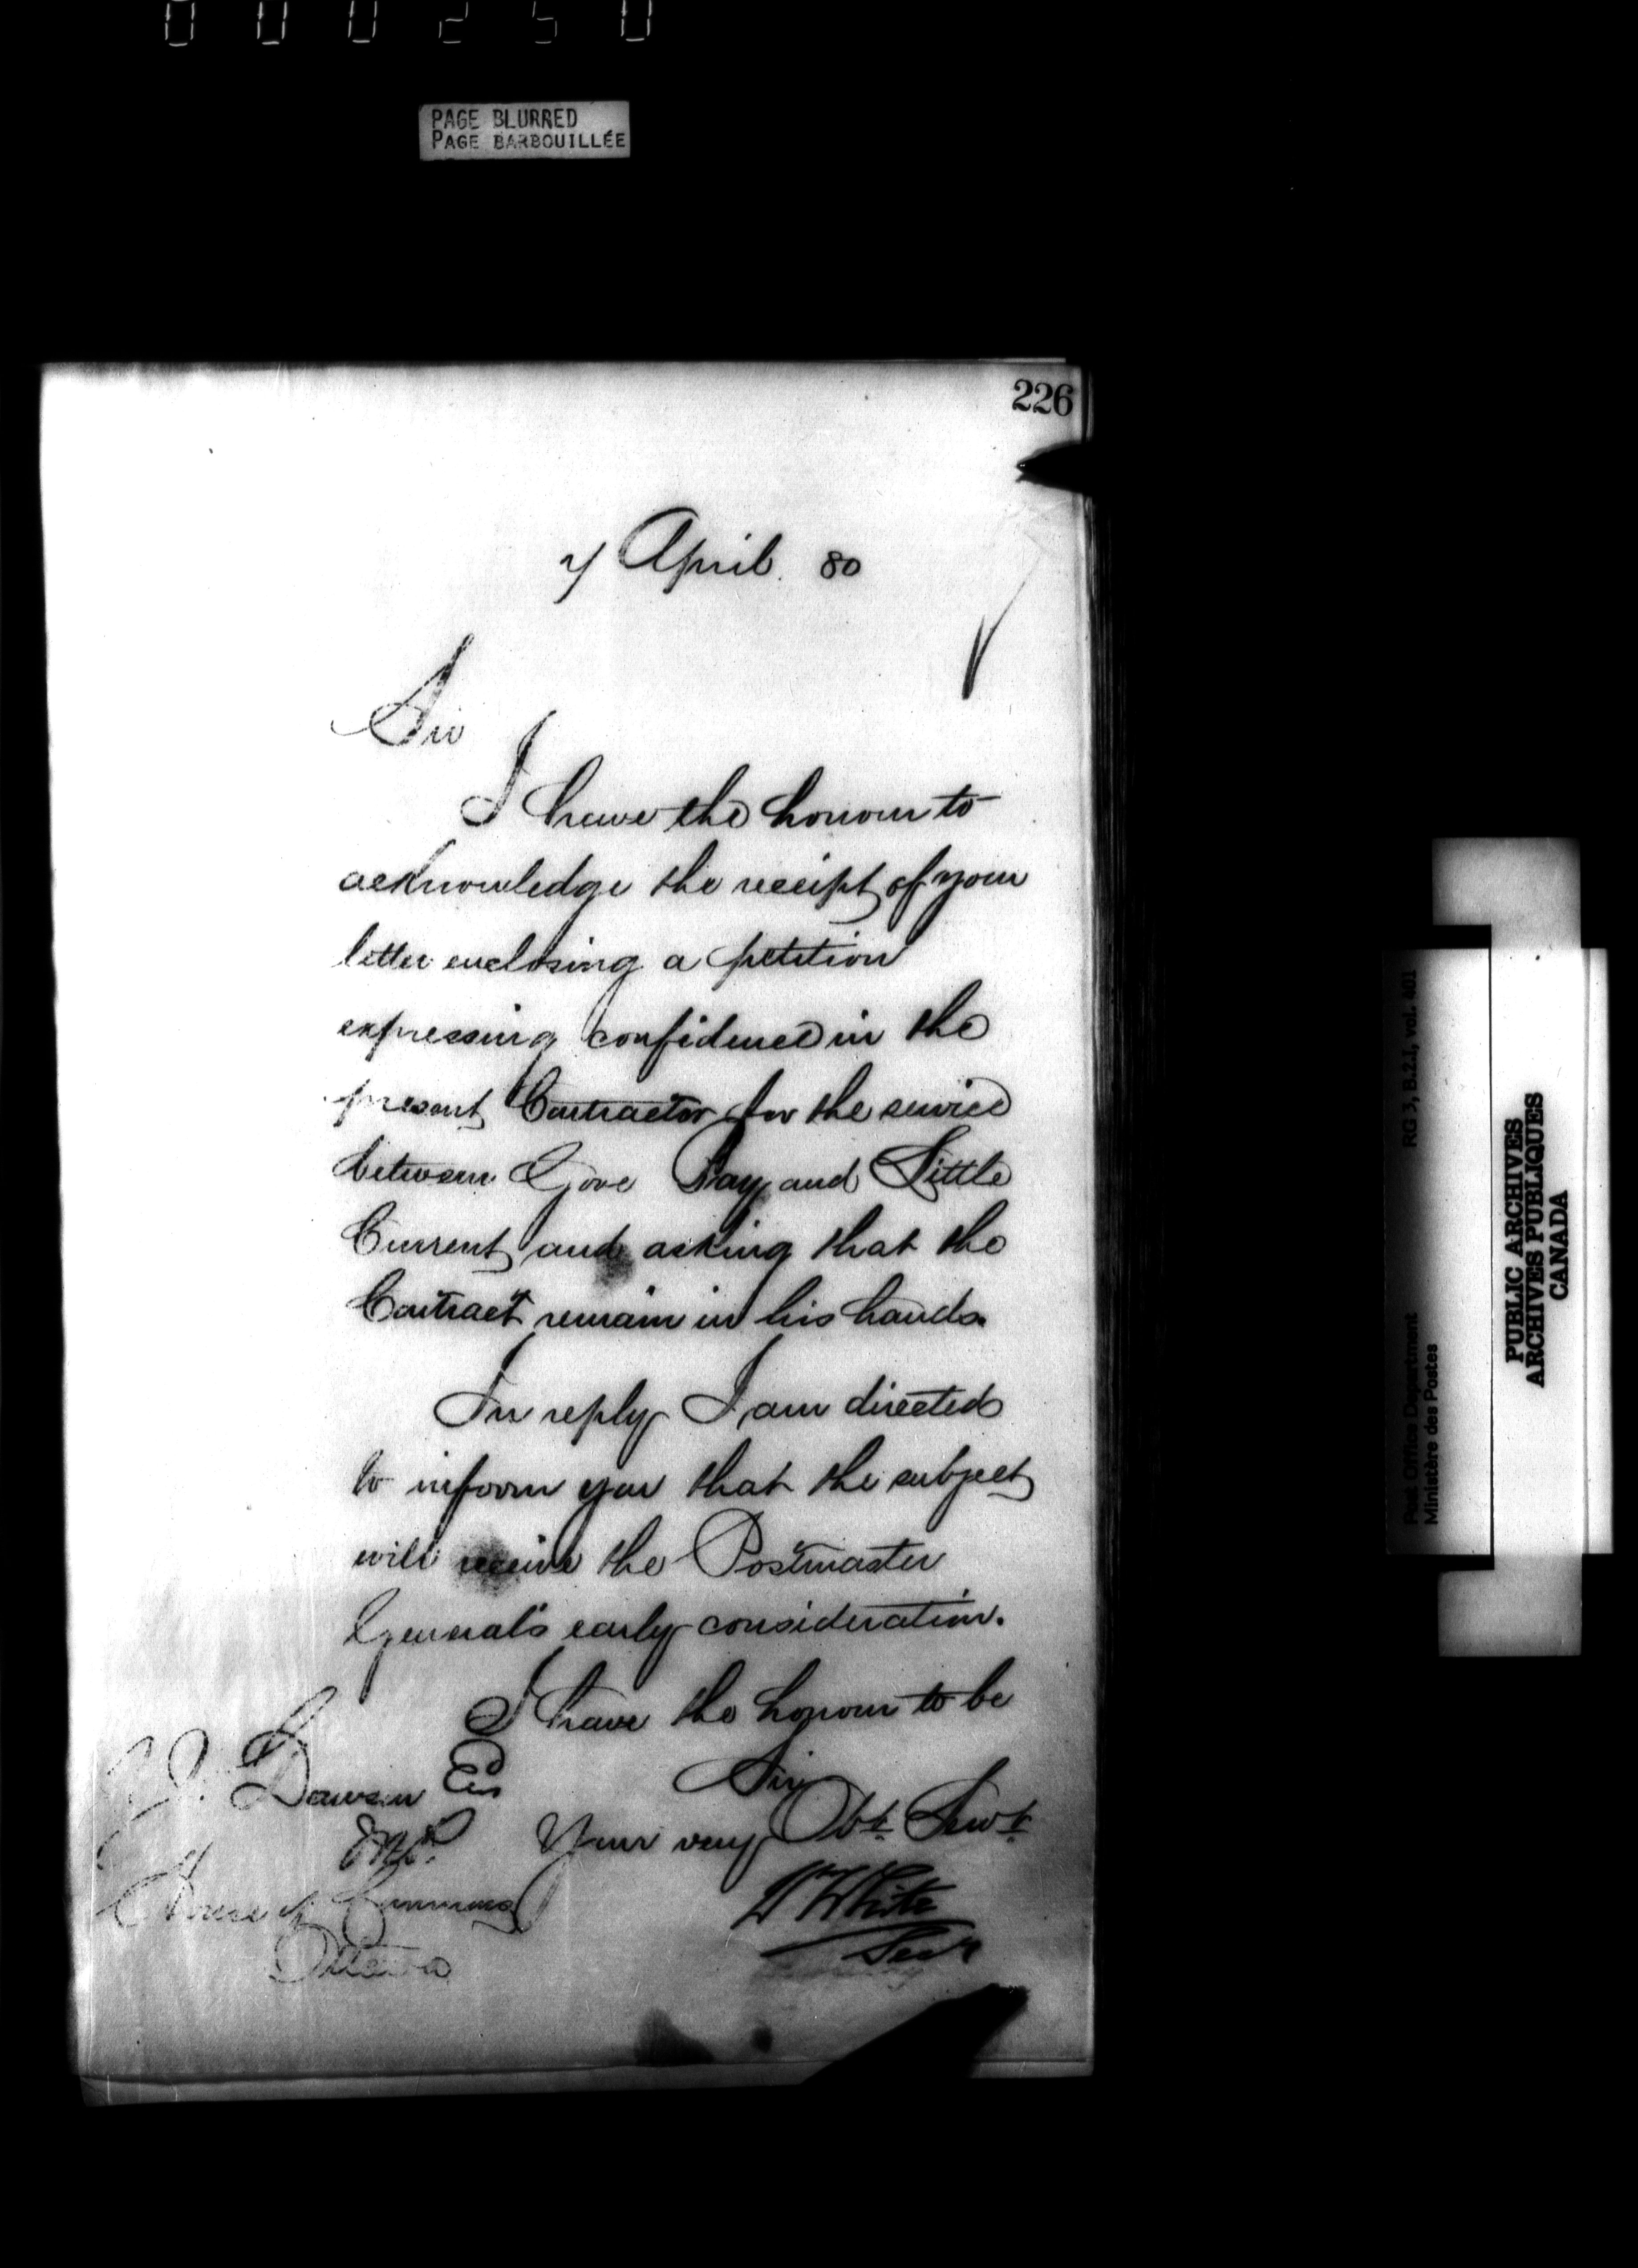 000250
PAGE BLURRED
PAGE BARBOUILLÉE
226
7 April. 80
Sir
I have the honour to
acknowledge the receipt of your
letter enclosing a petition
expressing confidence in the
present Contractor for the service
between Gore Bay and Little
Current and asking that the
Contract remain in his hands.
In reply I am directed
to inform you that the subject
will receive the Postmaster
General's early consideration.
I have the honour to be
Sir
Your very Obt. Servt.
W White
Secy
J. Dawson Esq
M.P.
House of Commons
Ottawa
RG 3, B.2.1, vol. 401
Post Office Department
Ministère des Postes
PUBLIC ARCHIVES
ARCHIVES PUBLIQUES
CANADA